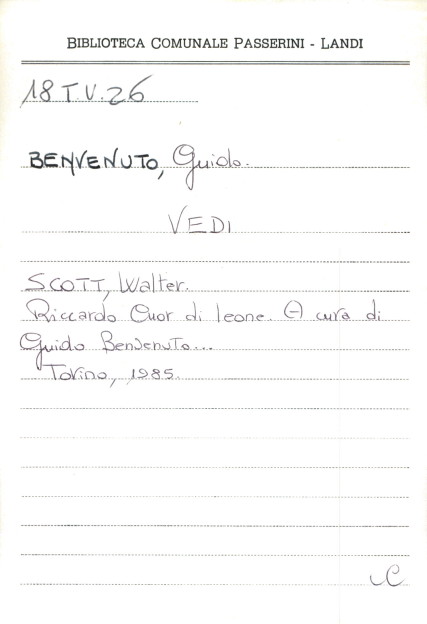 BIBLIOTECA COMUNALE PASSERINI - LANDI
18 T.V.26
BENVENUTO, Guido.
VEDI
SCOTT, Walter.
Riccardo Cuor di leone. A cura di
Guido Benvenuto...
Torino, 1985.